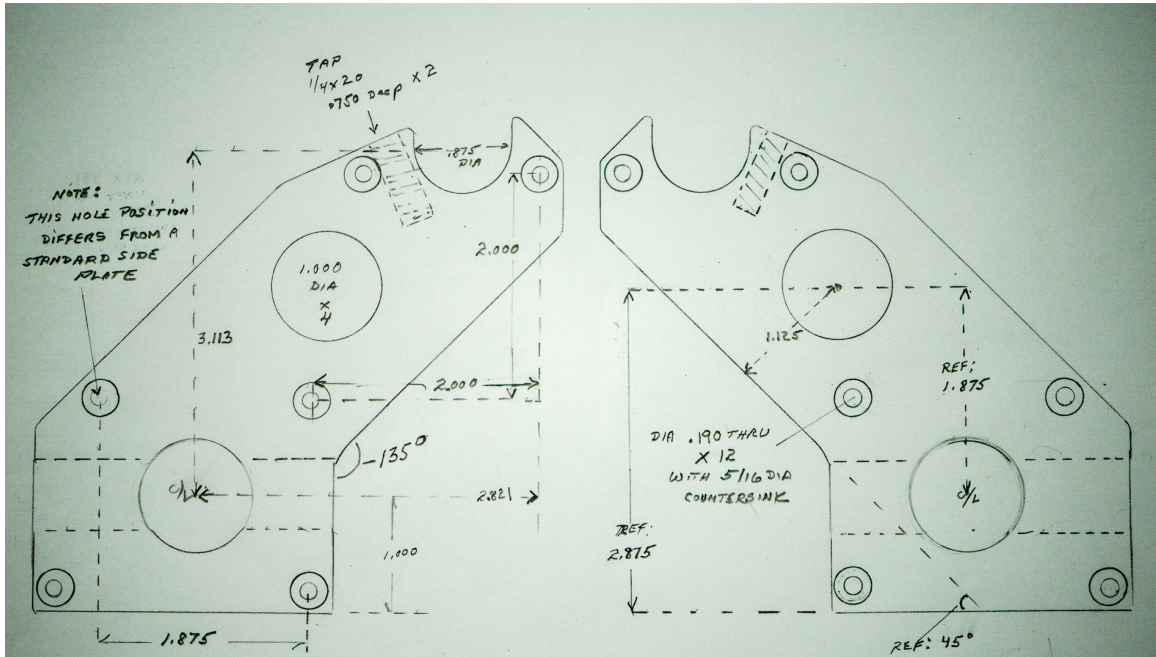 TAP
1/4x20
.750 Deep x 2
.875
DIA
NOTE:
THIS HOLE POSITION
DIFFERS FROM A
STANDARD SIDE
PLATE
1.000
DIA
x
4
2.000
3.113
2.000
135°
C/L
2.821
1.000
1.875
1.125
REF:
1.875
DIA .190 THRU
x 12
WITH 5/16 DIA
COUNTERSINK
C/L
REF:
2.875
REF: 45°